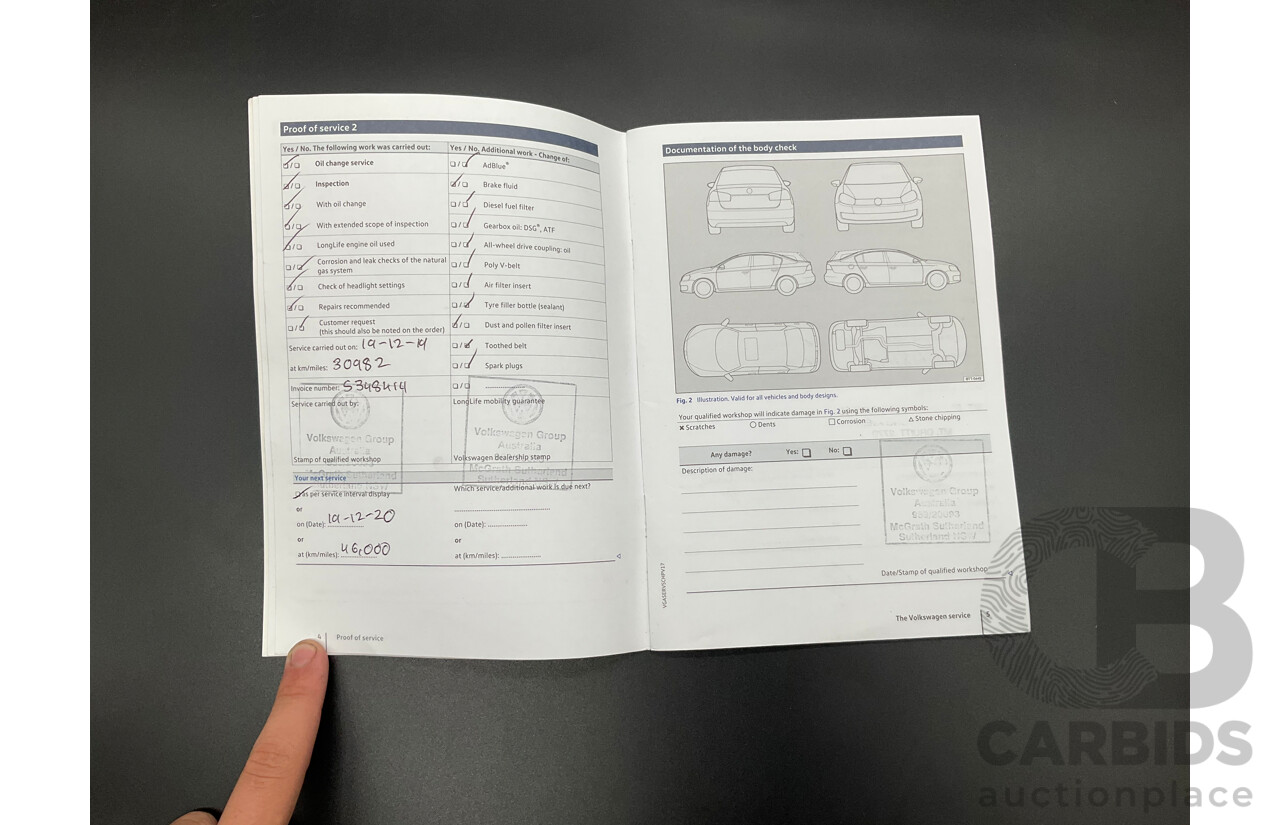 Proof of service 2
Yes / No. The following work was carried out:
Oil change service
Inspection
With oil change
With extended scope of inspection
LongLife engine oil used
Corrosion and leak checks of the natural
gas system
Check of headlight settings
Repairs recommended
Customer request
(this should also be noted on the order)
Service carried out on: 19-12-19
at km/miles: 30982
Invoice number:
Service carried out by:
Volkswagen Group
Australia
Stamp of qualified workshop
Yes / No. Additional work - Change of:
AdBlue®
Brake fluid
Diesel fuel filter
Gearbox oil: DSG®, ATF
All-wheel drive coupling: oil
Poly V-belt
Air filter insert
Tyre filler bottle (sealant)
Dust and pollen filter insert
Toothed belt
Spark plugs
LongLife mobility guarantee
Volkswagen Group
Australia
Volkswagen Dealership stamp
McGrath Sutherland
Your next service
as per service interval display
or
on (Date): 19-12-20
or
at (km/miles): 46,000
Which service/additional work is due next?
on (Date):
or
at (km/miles):
4 Proof of service
Documentation of the body check
Fig. 2 Illustration. Valid for all vehicles and body designs.
Your qualified workshop will indicate damage in Fig. 2 using the following symbols:
× Scratches ○ Dents □ Corrosion △ Stone chipping
Any damage? Yes: No:
Description of damage:
Volkswagen Group
Australia
McGrath Sutherland
Sutherland NSW
Date/Stamp of qualified workshop
The Volkswagen service 5
CB
CARBIDS
auctionplace